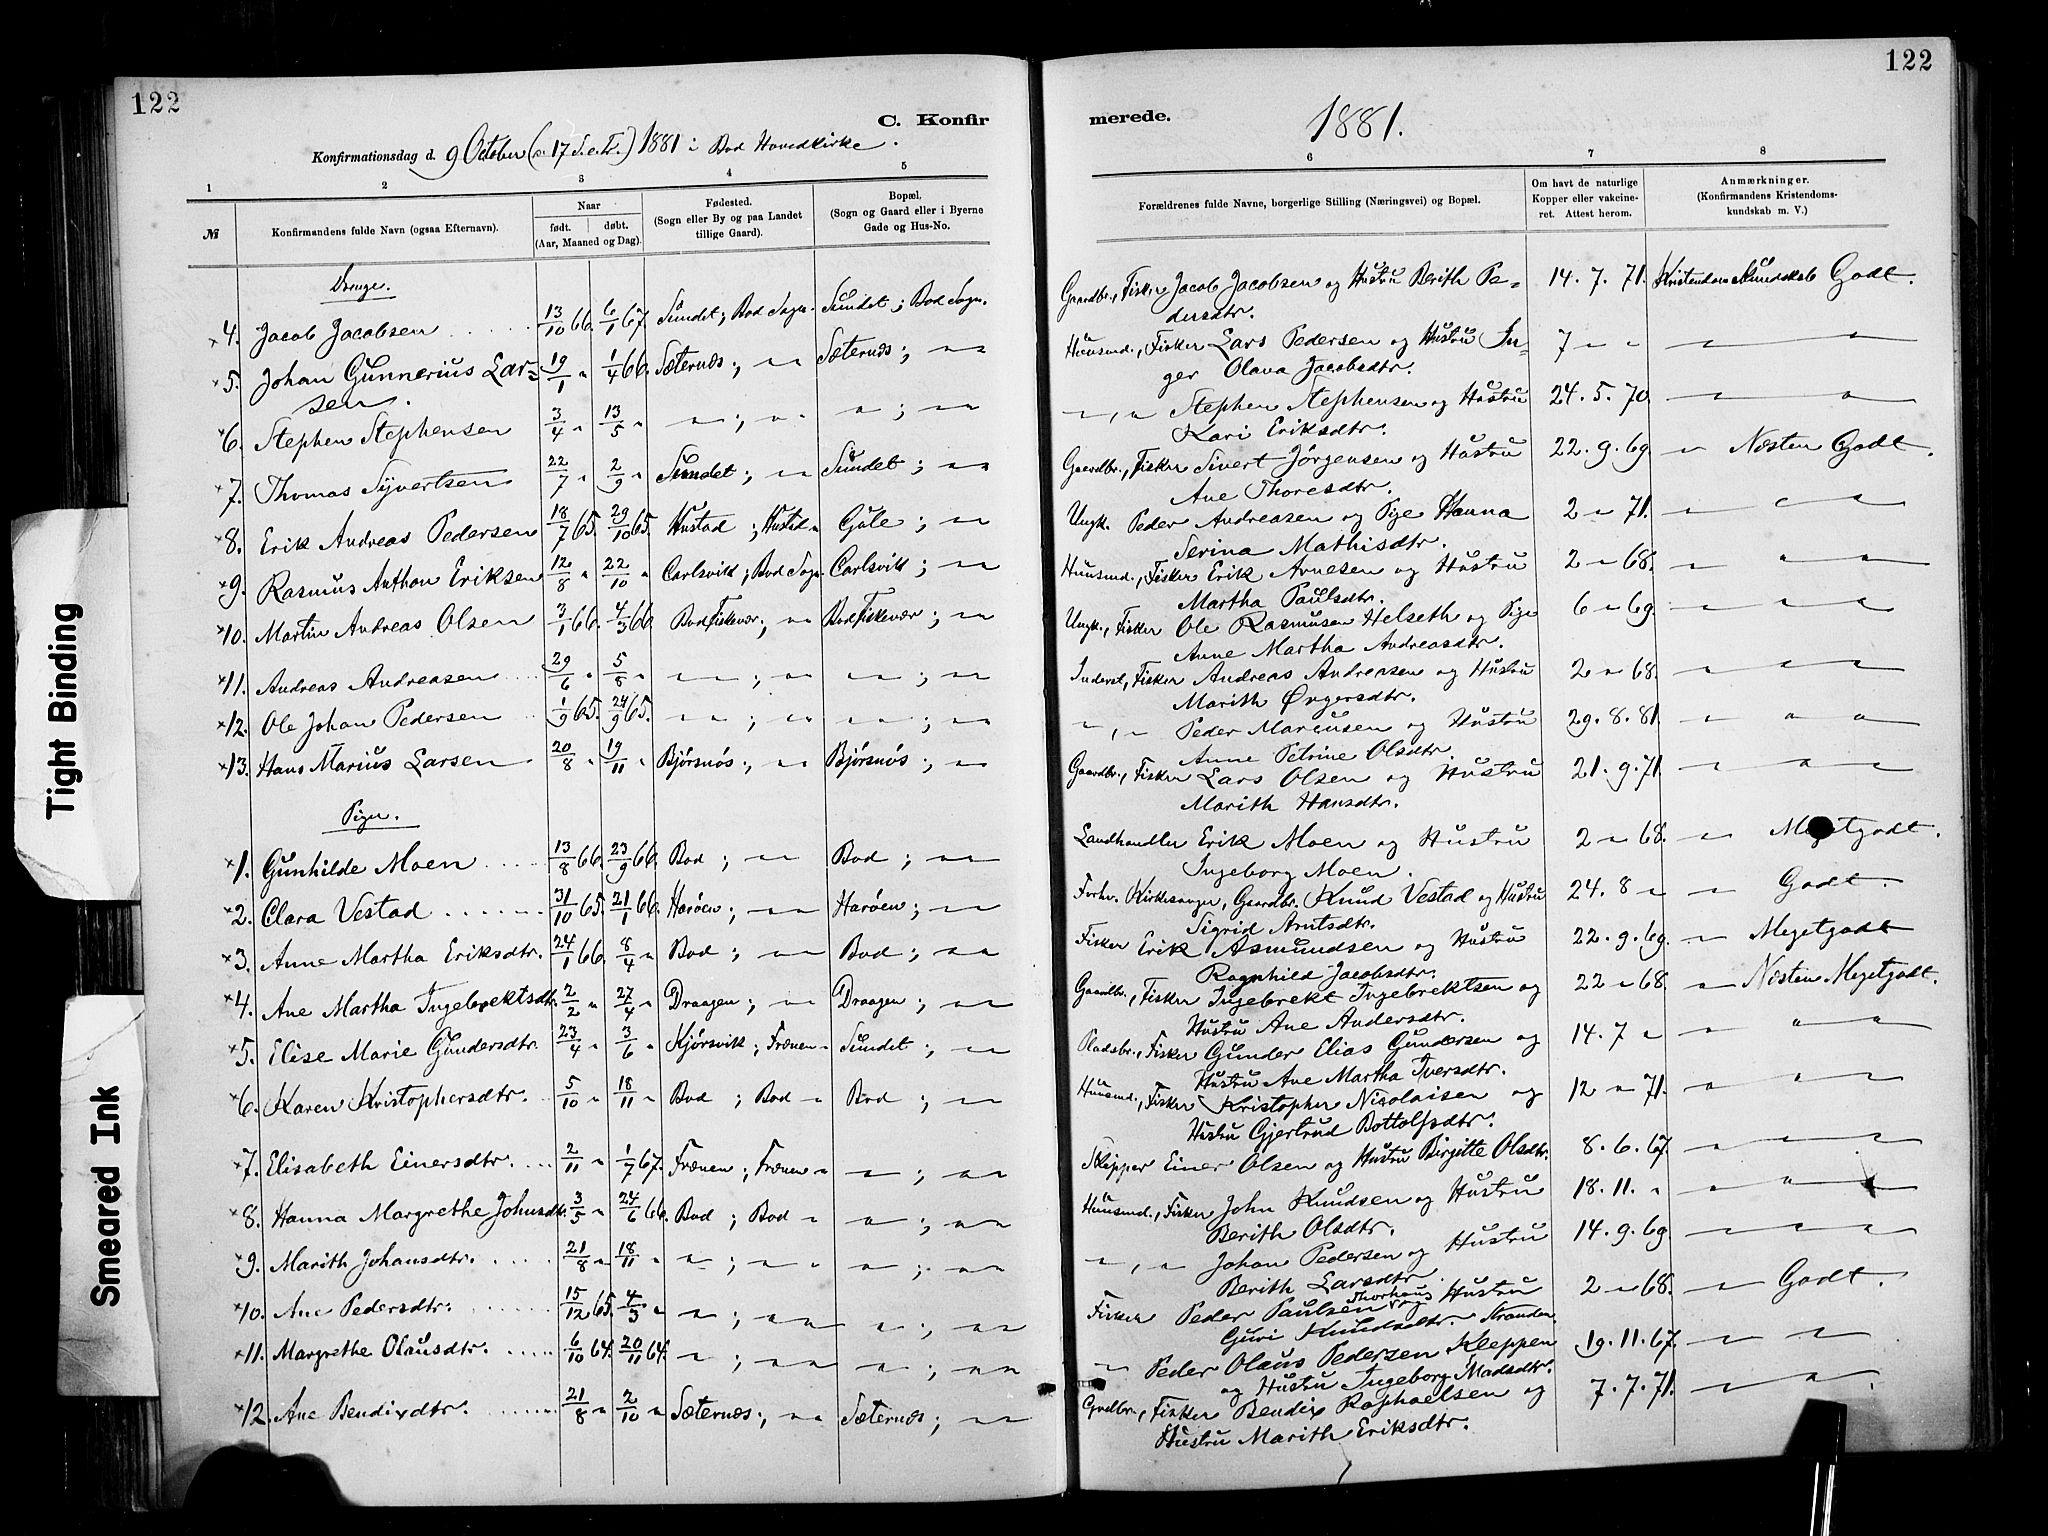 122
122
C. Konfir
merede.
1881.
Konfirmationsdag d. 9 October (s. 17 S. e. Tr.) 1881 i Bod Hovedkirke.
1 2 3 4 5
6 7 8
№ Konfirmandens fulde Navn (ogsaa Efternavn). Naar født. døbt. (Aar, Maaned og Dag). Fødested. (Sogn eller By og paa Landet tillige Gaard). Bopæl. (Sogn og Gaard eller i Byerne Gade og Hus-No.
Forældrenes fulde Navne, borgerlige Stilling (Næringsvei) og Bopæl. Om havt de naturlige Kopper eller vakcineret. Attest herom. Anmærkninger. (Konfirmandens Kristendomskundskab m. V.)
Drenge.
×4. Jacob Jacobsen 13/10 66. 6/1 67. Sundet; Bod Sogn. Sundet; Bod Sogn.
Gaardbr., Fisker Jacob Jacobsen og Hustru Berith Pe-
dersdtr. 14. 7. 71. Kristendomskundskab Godt.
×5. Johan Gunnerius Lar-
sen. 19/1 " 1/4 66. Sæternæs; " Sæternæs; "
Huusmd., Fisker Lars Pedersen og Hustru In-
ger Olava Jacobsdtr. 7 " " " "
×6. Stephen Stephensen 3/4 " 13/5 " "; " "; "
", " Stephen Stephensen og Hustru
Kari Eriksdtr. 24. 5. 70. " "
×7. Thomas Syvertsen 22/7 " 2/9 " Sundet; " Sundet; "
Gaardbr., Fisker Sivert Jørgensen og Hustru
Ane Thoresdtr. 22. 9. 69. " Næsten Godt.
×8. Erik Andreas Pedersen 18/7 65. 29/10 65. Hustad; Hustad " Gule; "
Ungk. Peder Andreasen og Pige Hanna
Serina Mathisdtr. 2 " 71. " " "
×9. Rasmus Anthon Eriksen 12/8 " 22/10 " Carlsvik; Bod Sogn. Carlsvik; "
Huusmd., Fisker Erik Arnesen og Hustru
Martha Paulsdtr. 2 " 68. " " "
×10. Martin Andreas Olsen 3/1 66. 4/3 66. Bod Fiskevær; " Bod Fiskevær; "
Ungk., Fisker Ole Rasmusen Helseth og Pige
Anne Martha Andreasdtr. 6 " 69. " " "
×11. Andreas Andreasen 29/6 " 5/8 " "; " "; "
Inderst, Fisker Andreas Andreasen og Hustru
Marith Øngersdtr. 2 " 68. " " "
×12. Ole Johan Pedersen 1/9 65. 24/9 65. "; " "; "
", " Peder Marcusen og Hustru
Anne Petrine Olsdtr. 29. 8. 81. " " "
×13. Hans Marius Larsen 20/8 " 19/11 " Bjørsnøs; " Bjørsnøs; "
Gaardbr., Fisker Lars Olsen og Hustru
Marith Hansdtr. 21. 9. 71. " " "
Piger.
×1. Gunhilde Moen 13/8 66. 23/9 66. Bod; " Bod; "
Landhandler Erik Moen og Hustru
Ingeborg Moen. 2 " 68. " Megetgodt.
×2. Clara Vestad 31/10 65. 21/1 66. Harøen; " Harøen; "
Forhv. Kirkesanger, Gaardbr. Knud Vestad og Hustru
Sigrid Arntsdtr. 24. 8 " " Godt.
×3. Anne Martha Eriksdtr. 24/1 66. 8/4 " Bod; " Bod; "
Fisker Erik Asmundsen og Hustru
Ragnhild Jacobsdtr. 22. 9. 69. " Megetgodt
×4. Ane Martha Ingebrektsdtr. 2/2 " 27/4 " Draagen; " Draagen; "
Gaardbr., Fisker Ingebrekt Ingebrektsen og
Hustru Ane Andersdtr. 22 " 68. " Næsten Megetgodt.
×5. Elise Marie Gundersdtr. 23/4 " 3/6 " Kjørsvik; Frænen " Sundet; "
Pladsbr., Fisker Gunder Elias Gundersen og
Hustru Ane Martha Iversdtr. 14. 7 " " " "
×6. Karen Kristophersdtr. 5/10 " 18/11 " Bod; Bod " Bod; "
Huusmd., Fisker Kristopher Nicolaisen og
Hustru Gjertrud Bottolfsdtr. 12 " 71. " " "
×7. Elisabeth Einersdtr. 2/11 " 1/7 67. Frænen; Frænen " "; "
Skipper Einer Olsen og Hustru Birgitte Olsdtr. 8. 6. 67. " " "
×8. Hanna Margrethe Johnsdtr. 3/5 " 24/6 66. Bod; Bod " "; "
Huusmd., Fisker John Knudsen og Hustru
Berith Olsdtr. 18. 11. " " " "
×9. Marith Johansdtr. 21/8 " 18/11 " "; " " "; "
", " Johan Pedersen og Hustru
Berith Larsdtr. 14. 9. 69. " " "
×10. Ane Pedersdtr. 15/12 65. 4/3 " "; " "; "
Fisker Peder Paulsen Thorhaug og Hustru
Guri Knudsdtr. Stranden 2 " 68. " Godt.
×11. Margrethe Olausdtr. 6/10 64. 20/11 64. "; " "; "
" Peder Olaus Pedersen Kleppen
og Hustru Ingeborg Madsdtr. 19. 11. 67. " "
×12. Ane Bendixdtr. 21/8 " 2/10 " Sæternæs; " Sæternæs; "
Grdbr., Fisker Bendix Raphaelsen og
Hustru Marith Eriksdtr. 7. 7. 71. " "
Tight Binding
Smeared Ink